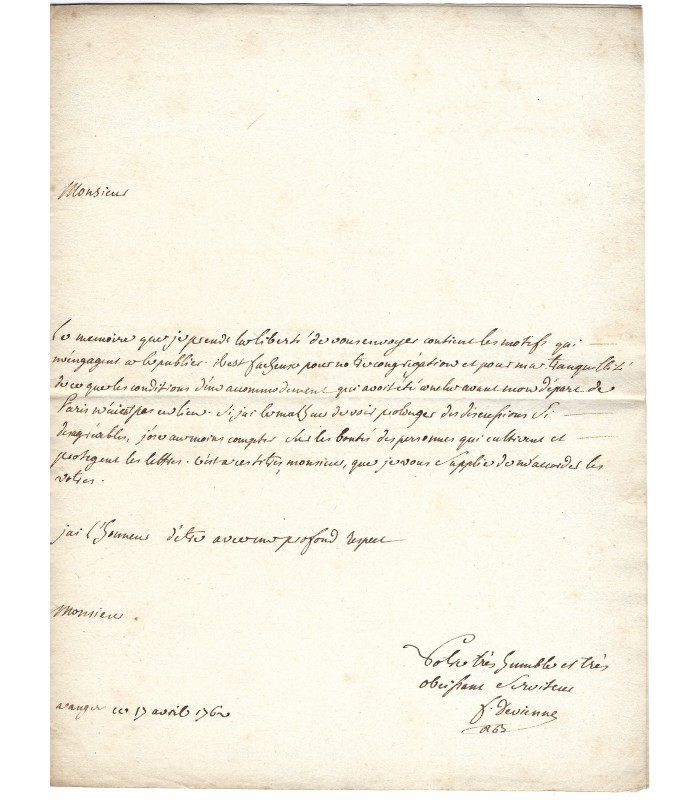 Monsieur
Le memoire que je prends la liberté de vous envoyer contient les motifs qui
m'engagent a le publier. il est facheux pour notre congrégation et pour ma tranquillité
de ce que les conditions d'un accommodement qui avoit été avant mon départ de
Paris n'aient pas eu lieu. Si j'ai le malheur de voir prolonger des discussions Si
desagréables, j'ose au moins compter sur les bontés des personnes qui cultivent et
protegent les lettres. C'est a ces titres, monsieur, que je vous Supplie de m'accorder les
votres.
jai l'honneur d'être avec un profond respect
Monsieur
Votre très humble et très
obeissant Serviteur
f. devienne
a angers ce 17 avril 1762